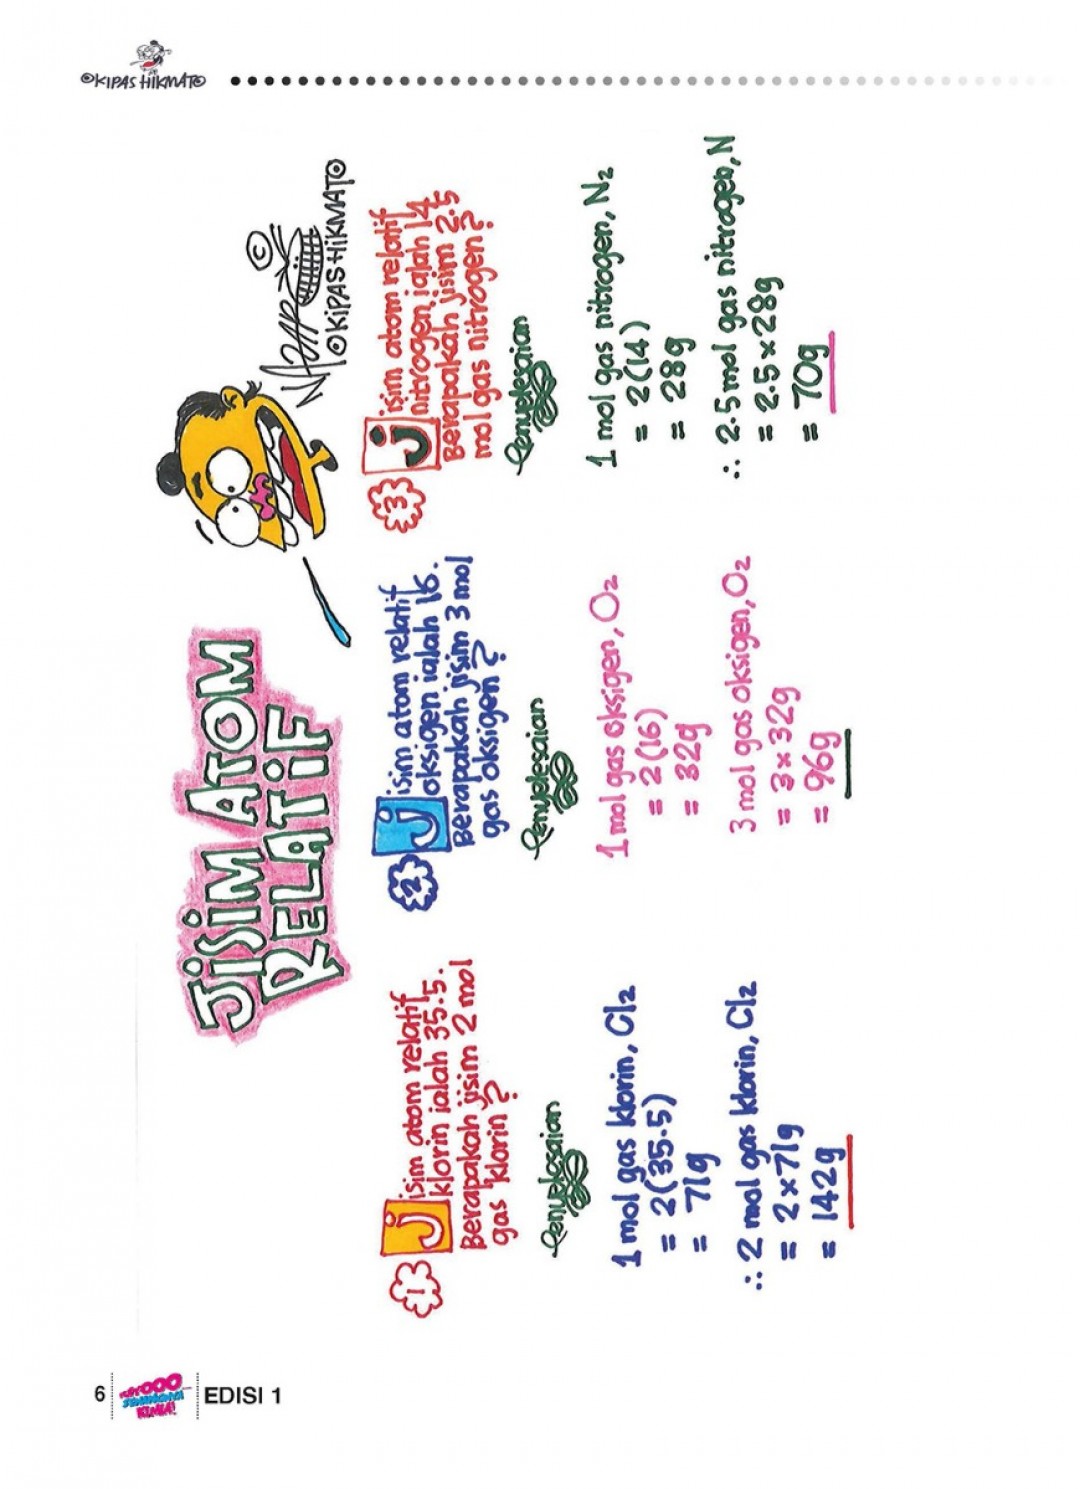 ©KIPASHIKMATO
JISIM ATOM
RELATIF
NAZAR ©
©KIPASHIKMATO
1
Jisim atom relatif
klorin ialah 35.5.
Berapakah jisim 2 mol
gas klorin?
Penyelesaian
1 mol gas klorin, Cl₂
= 2(35.5)
= 71g
∴ 2 mol gas klorin, Cl₂
= 2×71g
= 142g
2
Jisim atom relatif
oksigen ialah 16.
Berapakah jisim 3 mol
gas oksigen?
Penyelesaian
1 mol gas oksigen, O₂
= 2(16)
= 32g
3 mol gas oksigen, O₂
= 3×32g
= 96g
3
Jisim atom relatif
nitrogen ialah 14.
Berapakah jisim 2.5
mol gas nitrogen?
Penyelesaian
1 mol gas nitrogen, N₂
= 2(14)
= 28g
∴ 2.5 mol gas nitrogen, N
= 2.5×28g
= 70g
6
KIMIA!
EDISI 1